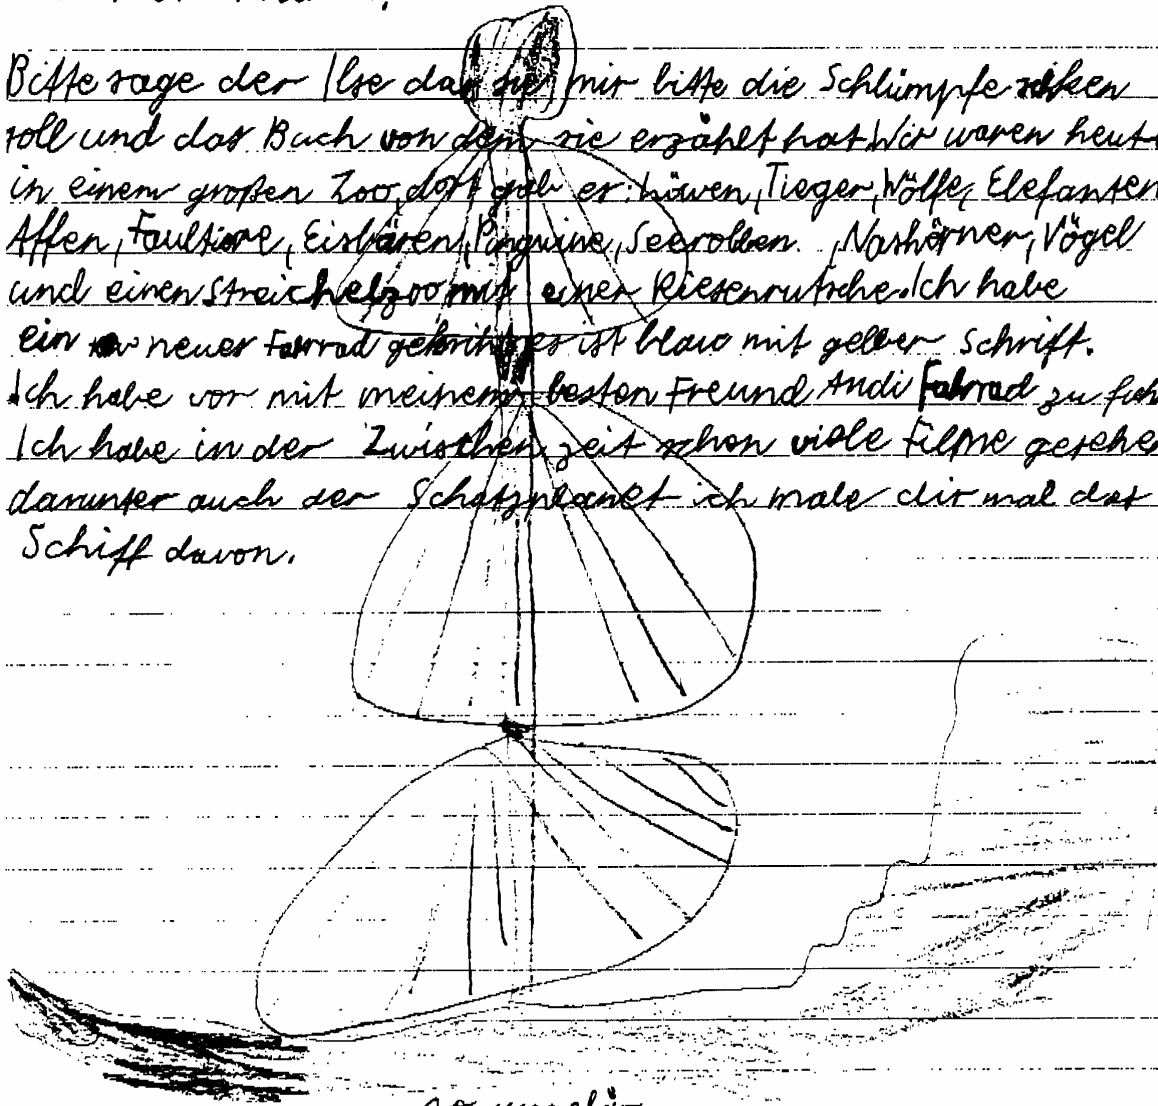 Bitte sage der Ilse das sie mir bitte die Schlümpfe schiken
soll und das Buch von dem sie erzählt hat Wir waren heute
in einem großen Zoo, dort gab es: Löwen, Tieger, Wölfe, Elefanten
Affen, Faultiere, Eisbären, Pinguine, Seerobben, Nashörner, Vögel
und einen Streichelzoo mit einer Riesenrutsche. Ich habe
ein neues Fahrrad es ist blau mit gelber Schrift.
Ich habe vor mit meinem besten Freund Andi Fahrrad zu
Ich habe in der Zwischen zeit schon viele Filme gesehen
darunter auch der Schatzplanet ich male dir mal das
Schiff davon.
so ungefär